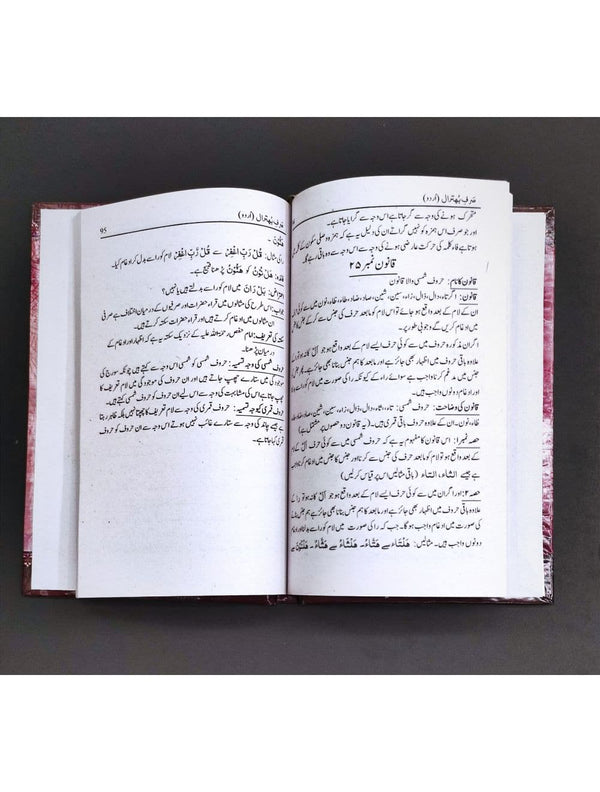 صرفِ بھترال (اردو)
متحرک ہونے کی وجہ سے گر جاتا ہے اس وجہ سے گرایا جاتا ہے
اور جو صرف ہمزہ کو نہیں گراتے ان کی دلیل یہ ہے کہ ہمزہ وصلی سکون کے
ہوتا ہے فاء کلمہ کی حرکت عارضی ہونے کی وجہ سے وہ باقی رہے گا۔
قانون نمبر ۲۵
قانون کا نام: حروف شمسی والا قانون
قانون: اگر تاء، دال، ذال، زاء، سین، شین، صاد، ضاد، طاء، ظاء، نون میں سے کوئی
ان کے لام کے بعد واقع ہو جائے تو اس لام کو مابعد حرف کی جنس سے کر کے جنس کو جنس
میں ادغام کریں گے وجوبی طور پر۔
اگر ان مذکورہ حروف میں سے کوئی حرف ایسے لام کے بعد واقع ہو جو اَلْ کا نہ ہو
علاوہ باقی حروف میں اظہار بھی جائز ہے اور مابعد کا ہم جنس بنانا بھی جائز ہے پھر
جنس میں مدغم کرنا واجب ہے سوائے راء کے کیونکہ راء کی صورت میں لام کو راء
اور ادغام دونوں واجب ہیں۔
قانون کی وضاحت: حروف شمسی: تاء، ثاء، دال، ذال، راء، زاء، سین، شین،
ظاء، نون۔ ان کے علاوہ حروف باقی قمری ہیں۔ (یہ قانون دو حصوں پر مشتمل ہے)
حصہ نمبر۱: اس قانون کا مفہوم یہ ہے کہ اگر حروف شمسی میں سے کوئی حرف اَلْ
کے بعد واقع ہو تو لام کو مابعد حرف کی جنس سے کرنا اور جنس کا جنس میں ادغام کرنا واجب
ہے جیسے اَلثَّاءُ، اَلتَّاءُ (باقی مثالیں اس پر قیاس کر لیں)
حصہ ۲: اور اگر ان میں سے کوئی حرف ایسے لام کے بعد واقع ہو جو اَلْ کا نہ ہو تو راء کے
علاوہ باقی حروف میں اظہار بھی جائز ہے اور مابعد کا ہم جنس بنانا بھی جائز ہے پھر ہم جنس
کی صورت میں ادغام واجب ہو گا۔ جب کہ راء کی صورت میں لام کو راء سے بدلنا اور ادغام
دونوں واجب ہیں۔ مثالیں: هَلْتَاءُ سے هَتَّاءُ۔ هَلْثَاءُ سے هَثَّاءُ۔ هَلْنُوْنُ سے
صرفِ بھترال (اردو) 95
هَنُّوْنُ۔
راء کی مثال: قُلْ رَبِّ اغْفِرْ سے قُل رَّبِّ اغْفِرْ لام کو راء سے بدل کر ادغام کیا۔
فائدہ: هَلْ نُوْنُ کو هَنُّوْنُ پڑھنا قبیح ہے۔
اعتراض: بَلْ رَانَ میں لام کو راء سے بدلتے ہیں یا نہیں؟
جواب: اس طرح کی مثالوں میں قراء حضرات اور صرفیوں کے درمیان اختلاف ہے صرفی
ان مثالوں میں ادغام کرتے ہیں اور قراء حضرات سکتہ کرتے ہیں۔
سکتہ کی تعریف: امام حفص رحمۃ اللہ علیہ کے نزدیک سکتہ ہے کہ اظہار اور ادغام کے
درمیان پڑھنا۔
حروف شمسی کی وجہ تسمیہ: حروف شمسی کو شمسی اس وجہ سے کہتے ہیں چونکہ سورج کی
موجودگی میں ستارے چھپ جاتے ہیں اور ان حروف کی موجودگی میں لام تعریف کا
چھپ جاتا ہے اس کی مشابہت کی وجہ سے ان حروف کو شمسی کہتے ہیں۔
حروف قمری کی وجہ تسمیہ: حروف قمری کی وجہ سے لام تعریف کا چھپتا نہیں بلکہ ظاہر رہتا
ہے جیسے چاند کی وجہ سے ستارے غائب نہیں ہوتے اس وجہ سے ان حروف کو حروف
قمری کہا جاتا ہے۔